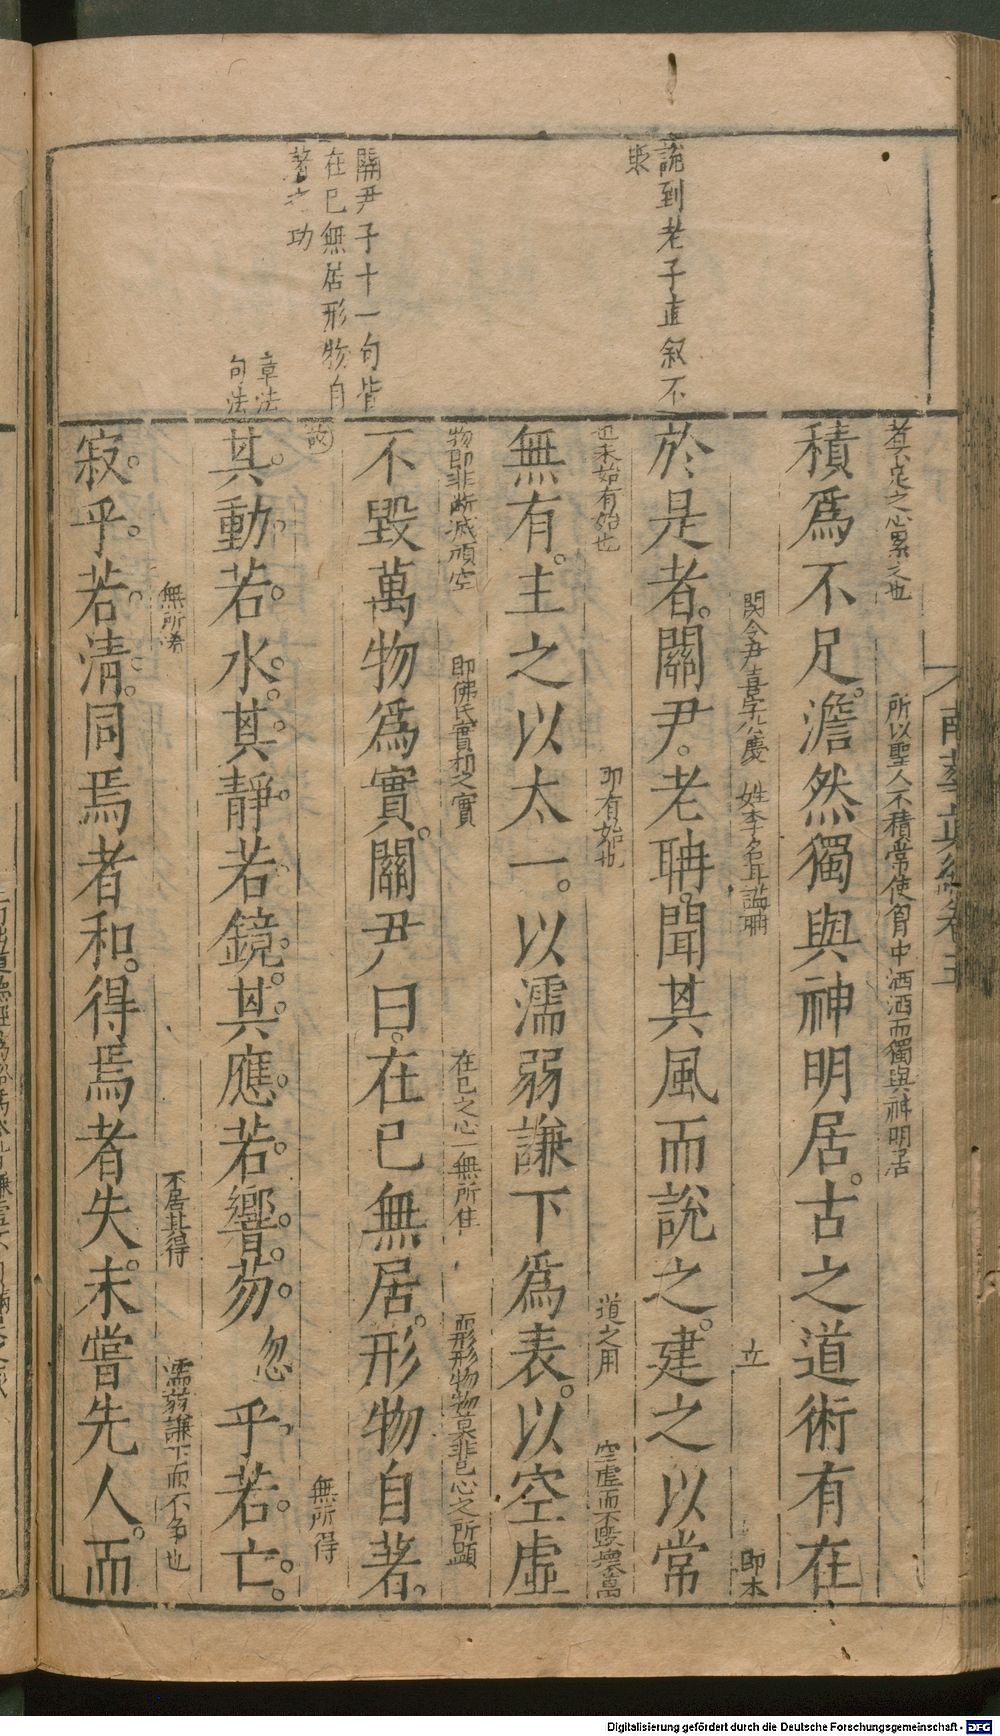 說到老子直叙不
關尹子十一句皆
在已無居形物自
著之功
章法
句法
南華真經卷五
著不足之心累之也 所以聖人不積常使胷中洒洒而獨與神明居
積爲不足。澹然獨與神明居。古之道術有在
関令尹喜字公慶 姓李名耳謚聃 立 即本
於是者。關尹。老聃。聞其風而說之。建之以常
也未始有始也 即有始也 道之用 空虛而不毀壞萬
無有。主之以太一。以濡弱謙下爲表。以空虛
物即非斷滅頑空 即佛氏實相之實 在已之心一無所住 而形形物物莫非已心之所顯
不毀萬物爲實。關尹曰。在已無居。形物自著。
故 無所得
其動若水。其靜若鏡。其應若響。芴忽乎若亡。
無所淆 不居其得 濡弱謙下而不爭也
寂乎若清。同焉者和。得焉者失。未嘗先人。而
Digitalisierung gefördert durch die Deutsche Forschungsgemeinschaft - DFG